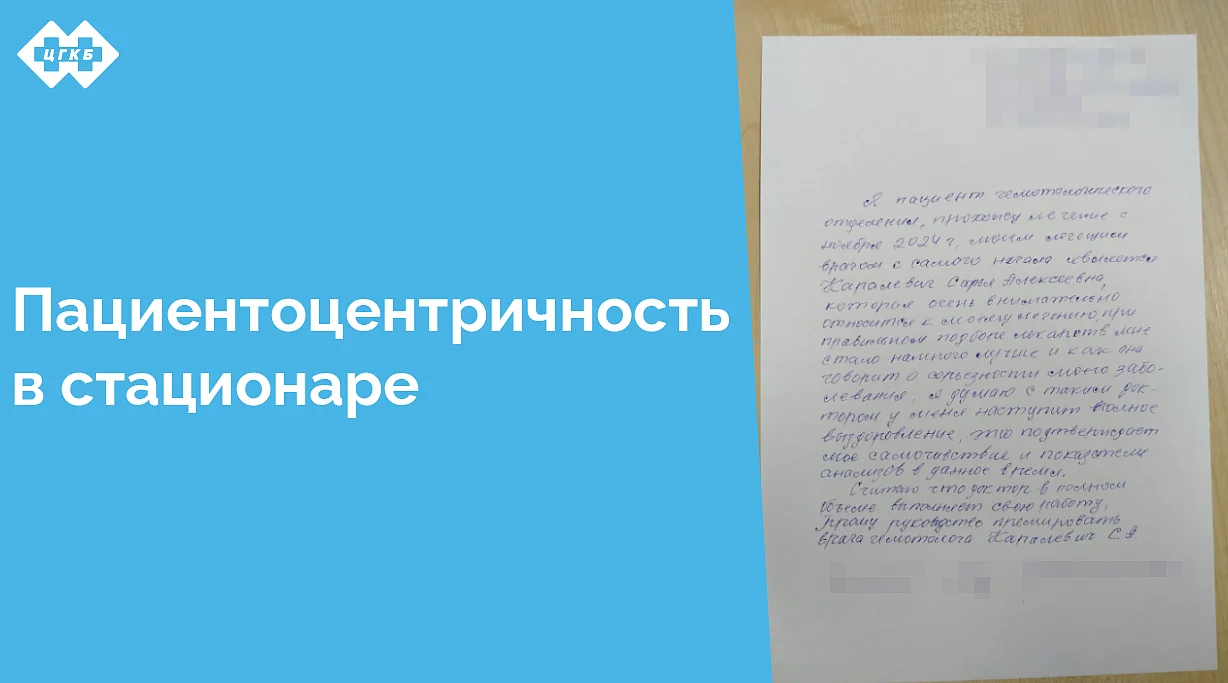 ЦГКБ
Пациентоцентричность
в стационаре
Я пациент гемотологического
отделения, прохожу лечение с
ноября 2024 г, моим лечещим
врачом с самого начала является
Каралевич Сарья Алексеевна,
которая очень внимательно
относится к моему лечению, при
правильном подборе лекарств мне
стало намного лучше и как она
говорит о серьезности моего забо-
левания, я думаю с таким док-
тором у меня наступит полное
выздоровление, это подтверждает
мое самочувствие и показатели
анализов в данное время.
Считаю что доктор в полном
объеме выполняет свою работу,
Прошу руководство премировать
врача гемотолога Каралевич С.А.